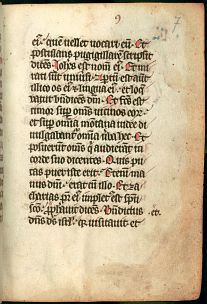 9 7
ei⁹ quē vellet vocari eū. Et
postulans pugillarē scripsit
dicēs Johēs est nomē ei⁹. Et mi
rati sūt uniūsi. Aptū est autē
illico os ei⁹ ⁊ lingua ei⁹ et loq̄
batur bn̄dicēs dm̄. Et fcs est
timor sup om̄s vicinos eoꝝ
et sup omnia mōtana iudee di
vulgabantᵉ om̄ia v̄ba hec. Et
posuerunt om̄s q̄ audierāt in
corde suo dicentes. Quis pu
tas puer iste erit. Eteni ma
nus dn̄i erat cū illo. Et za
charias pr̄ ei⁹ implet⁹ est spū
sc̄o. ⁊ ꝓphauit dicēs. Bn̄dictus
dn̄s ds isrl. q̄ visitauit et